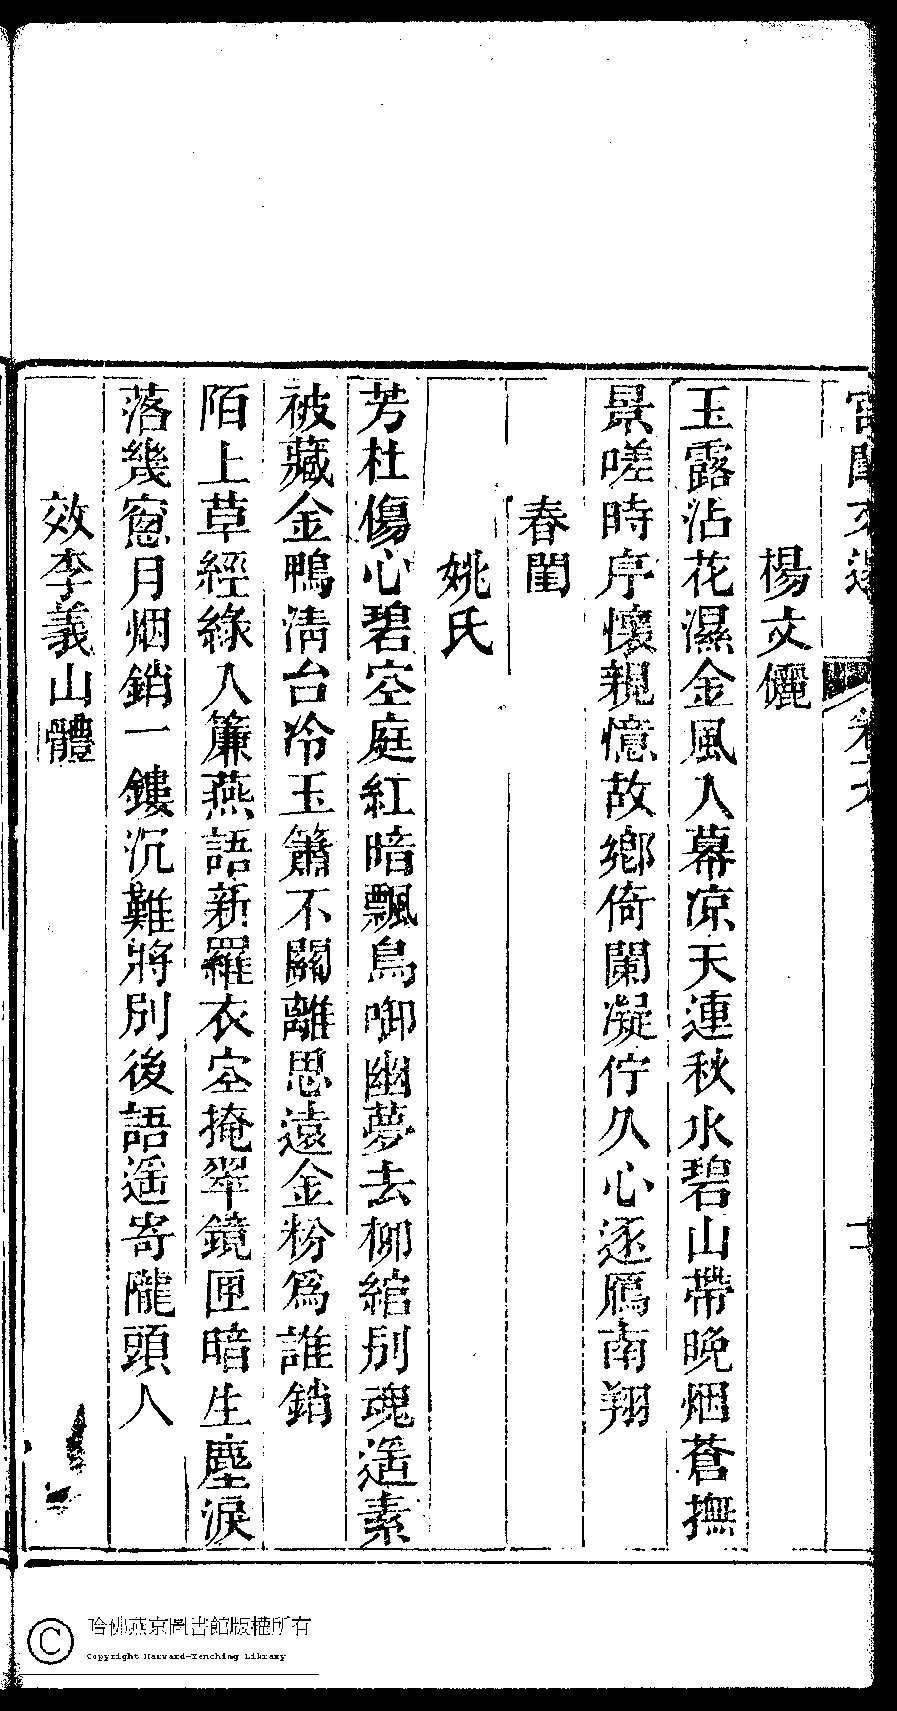 楊文儷
玉露沾花濕金風入幕凉天連秋水碧山帶晚烟蒼撫
景嗟時序懷親憶故鄉倚闌凝佇久心逐鴈南翔
春閨
姚氏
芳杜傷心碧空庭紅暗飄鳥啣幽夢去柳綰別魂遥素
被藏金鴨淸台冷玉簫不關離思遠金粉爲誰銷
陌上草經綠入簾燕語新羅衣空掩翠鏡匣暗生塵淚
落幾窻月烟銷一鏤沉難將別後語遥寄隴頭人
效李義山體
哈佛燕京圖書館版權所有
Copyright Harvard-Yenching Library